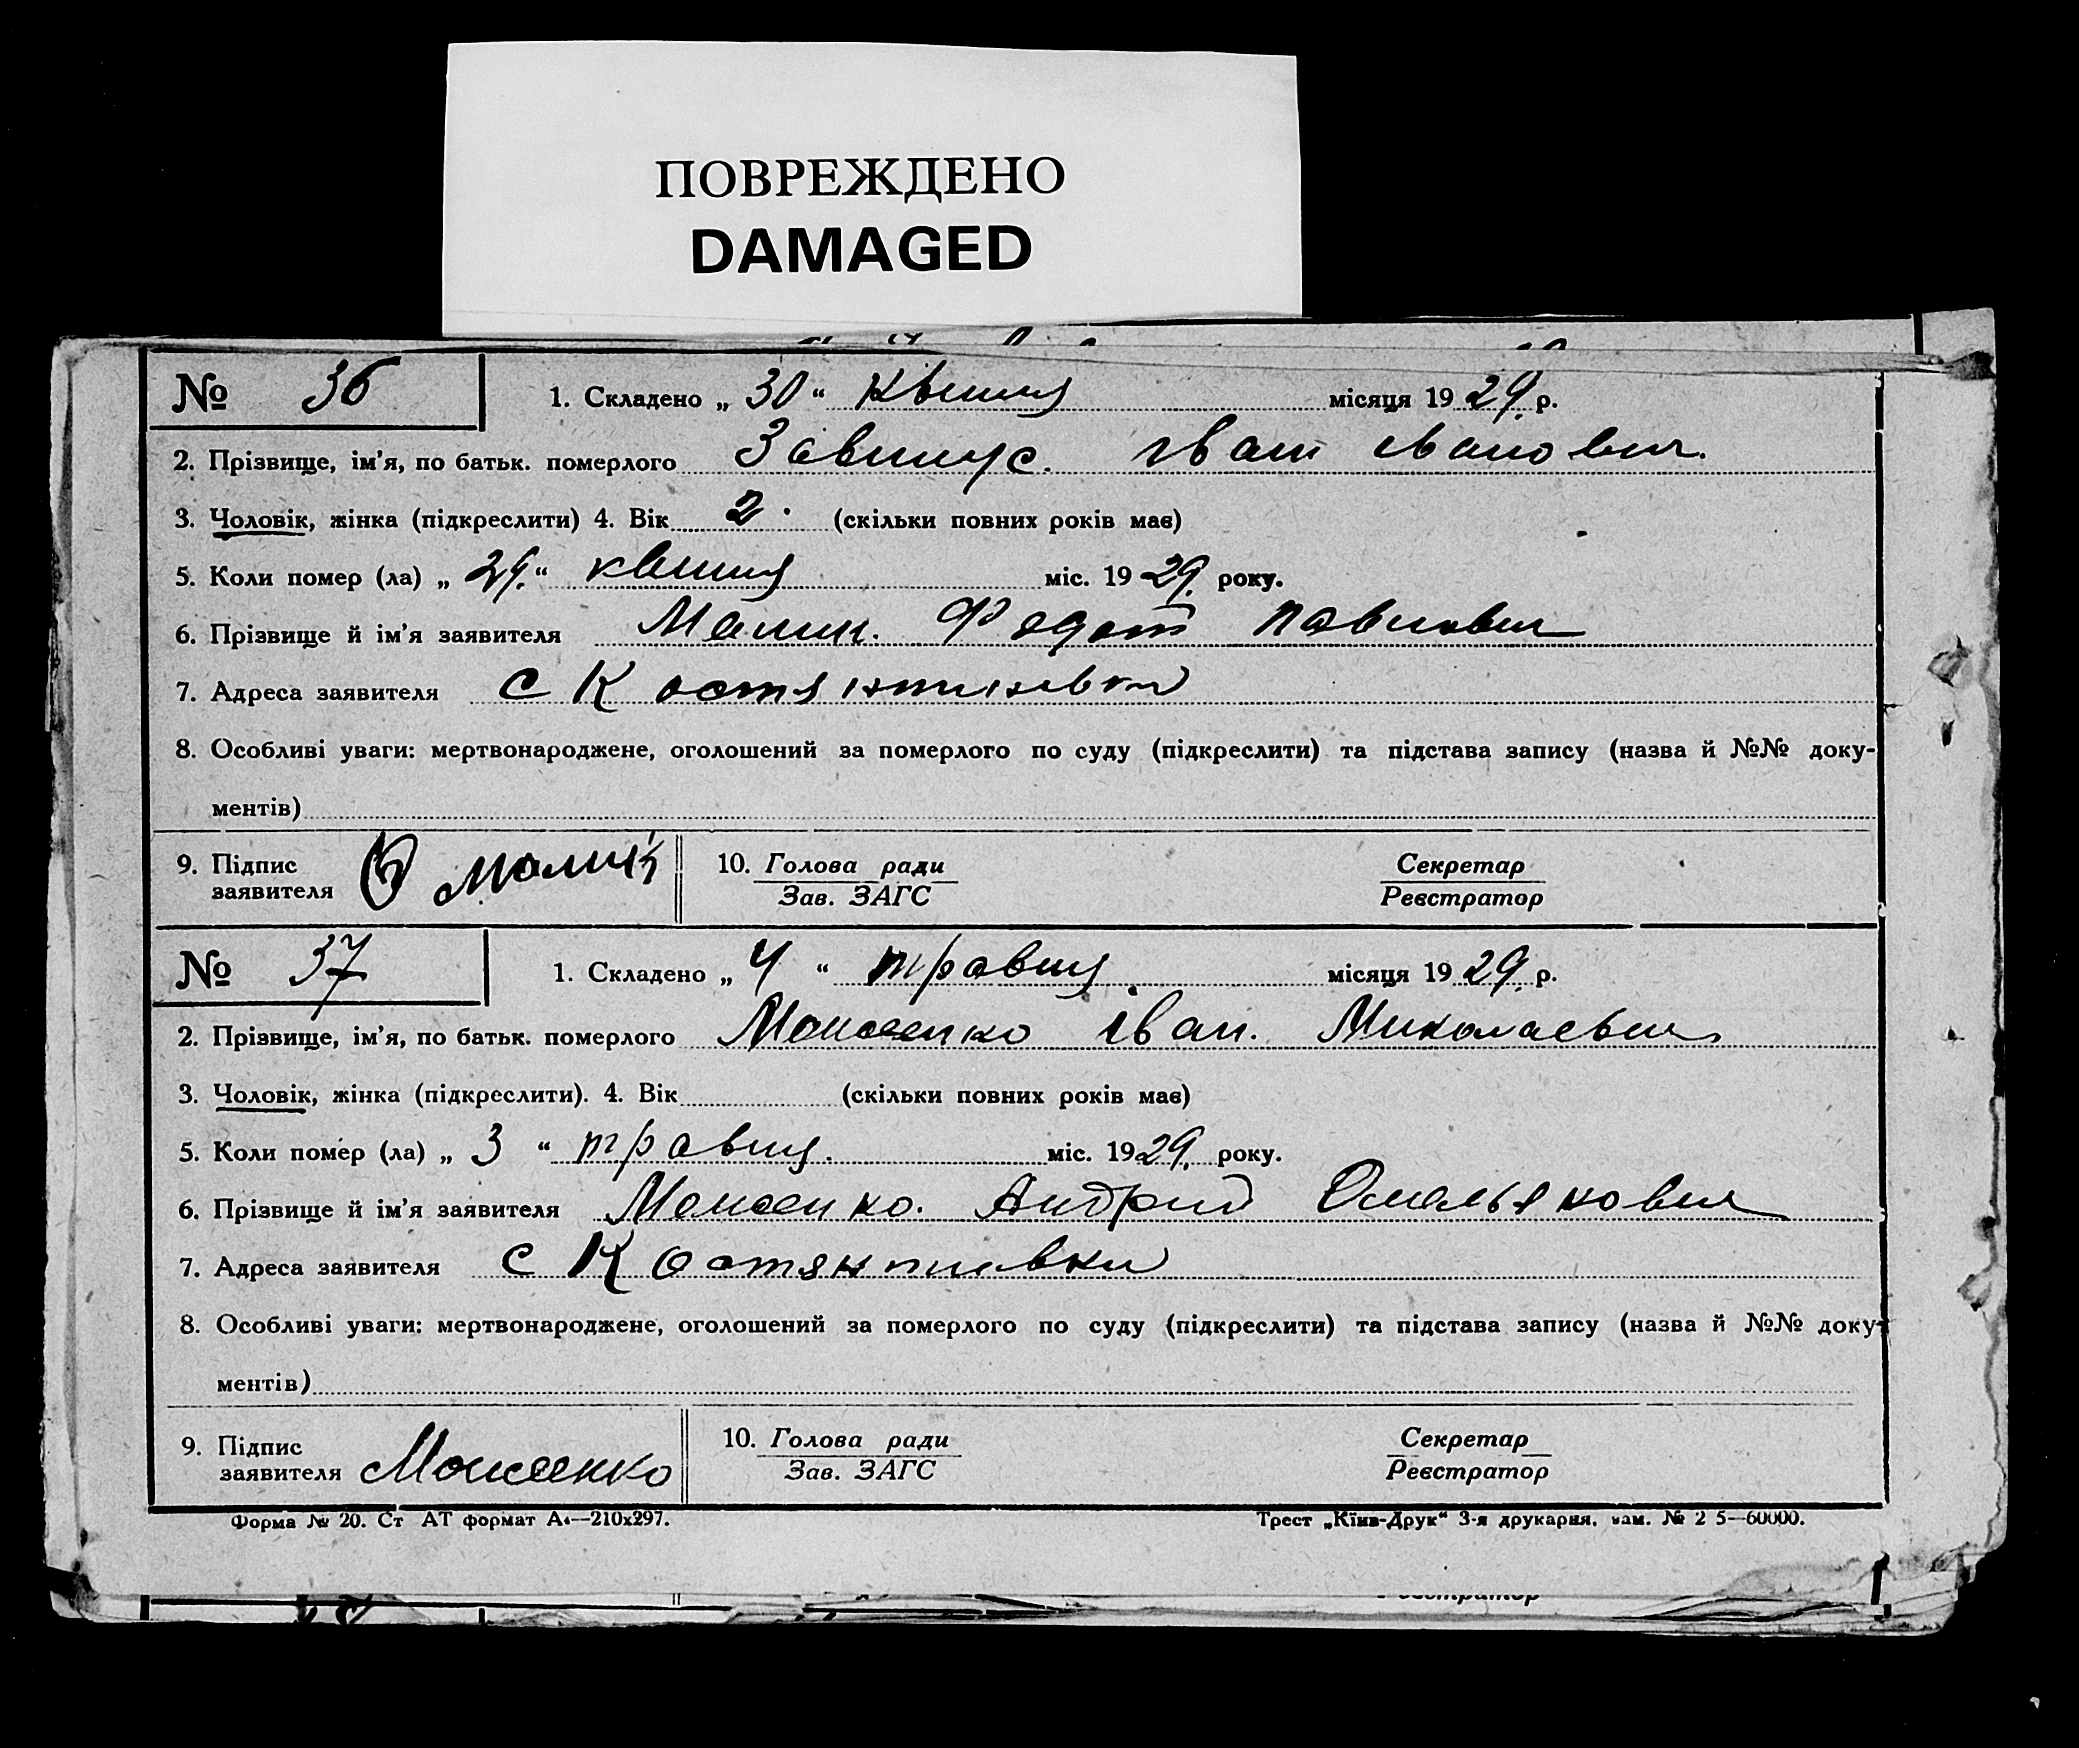 ПОВРЕЖДЕНО
DAMAGED
№ 36 1. Складено „ 30 “ квітня місяця 1929 р.
2. Прізвище, ім'я, по батьк. померлого Іван Іванович.
3. Чоловік, жінка (підкреслити) 4. Вік 2. (скільки повних років має)
5. Коли помер (ла) „ 29. “ квітня міс. 1929. року.
6. Прізвище й ім'я заявителя Федот Павлович
7. Адреса заявителя с
8. Особливі уваги: мертвонароджене, оголошений за померлого по суду (підкреслити) та підстава запису (назва й №№ доку-
ментів)
9. Підпис 10. Голова ради Секретар
заявителя Зав. ЗАГС Реєстратор
№ 37 1. Складено „ 4 “ травня місяця 1929. р.
2. Прізвище, ім'я, по батьк. померлого Іван. Миколаєвич
3. Чоловік, жінка (підкреслити). 4. Вік (скільки повних років має)
5. Коли помер (ла) „ 3 “ травня. міс. 1929. року.
6. Прізвище й ім'я заявителя Андрий Омельянович
7. Адреса заявителя с
8. Особливі уваги: мертвонароджене, оголошений за померлого по суду (підкреслити) та підстава запису (назва й №№ доку-
ментів)
9. Підпис 10. Голова ради Секретар
заявителя Зав. ЗАГС Реєстратор
Форма № 20. Ст АТ формат А4—210х297. Трест „Київ-Друк“ 3-я друкарня, зам. № 2 5—60000.